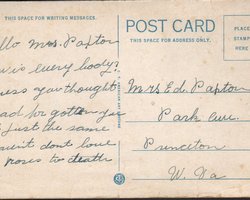 THIS SPACE FOR WRITING MESSAGES.
llo Mrs. Paxton
w is every body?
ess you thought
ad forgotten you
t just the same
ain't dont love
roses to death
POST CARD
THIS SPACE FOR ADDRESS ONLY.
PLACE
STAMP
Mrs Ed Paxton
Park Ave.
Princeton
W. Va